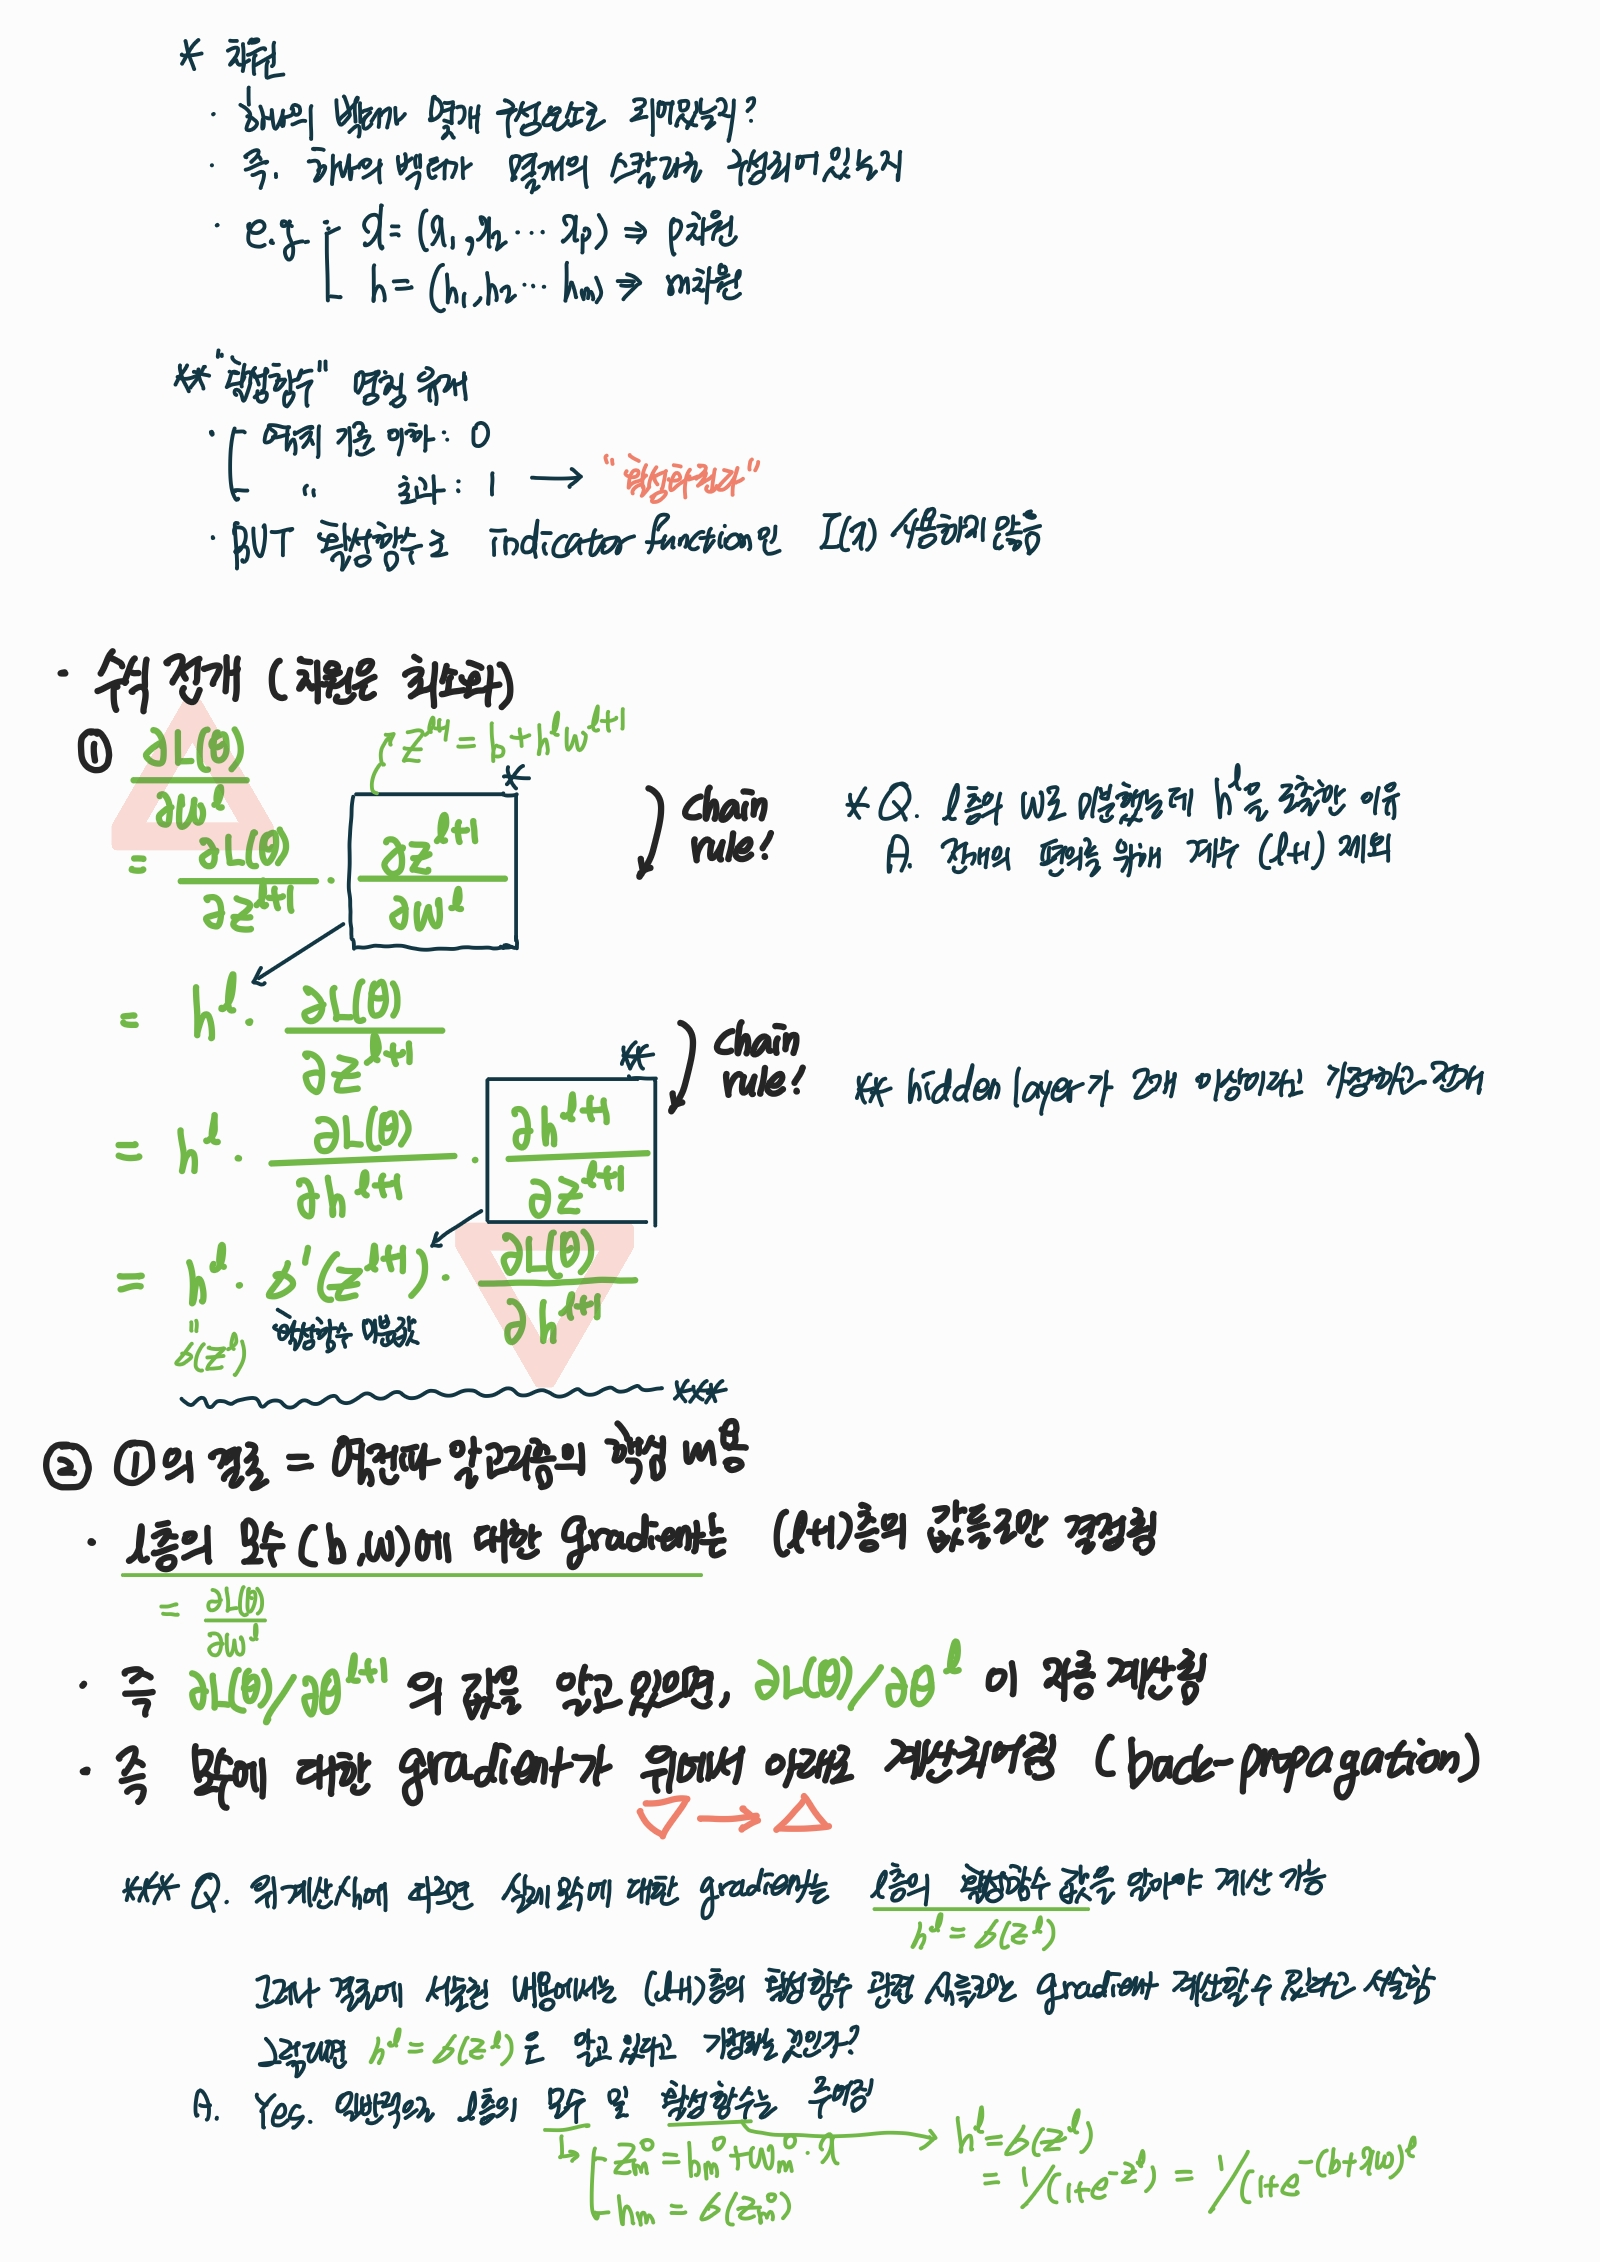 * 차원
· 하나의 벡터가 몇개 구성요소로 되어있는지?
· 즉, 하나의 벡터가 몇개의 스칼라로 구성되어있는지
· e.g x = (x₁, x₂ ⋯ xₚ) ⇒ p차원
h = (h₁, h₂ ⋯ hₘ) ⇒ m차원
** "활성함수" 명칭 유래
· 역치 기준 이하 : 0
" 초과 : 1 → "활성화된다"
· BUT 활성함수로 indicator function인 I(x) 사용하지 않음
· 수식 전개 (차원은 최소화)
① ∂L(θ)/∂w^l
z^{l+1} = b + h^l w^{l+1}
= ∂L(θ)/∂z^{l+1} · ∂z^{l+1}/∂w^l *
chain rule!
* Q. l층의 w로 미분했는데 h^l을 도출한 이유
A. 전개의 편의를 위해 계수 (l+1) 제외
= h^l · ∂L(θ)/∂z^{l+1}
chain rule!
= h^l · ∂L(θ)/∂h^{l+1} · ∂h^{l+1}/∂z^{l+1} **
** hidden layer가 2개 이상이라고 가정하고 전개
= h^l · σ'(z^{l+1}) · ∂L(θ)/∂h^{l+1}
" σ(z^l) 활성함수 미분값
***
② ①의 결론 = 역전파 알고리즘의 핵심 내용
· l층의 모수(b,w)에 대한 gradient는 (l+1)층의 값들로만 결정됨
= ∂L(θ)/∂w^l
· 즉 ∂L(θ)/∂θ^{l+1} 의 값을 알고있으면, ∂L(θ)/∂θ^l 이 자동 계산됨
· 즉 모수에 대한 gradient가 위에서 아래로 계산되어짐 (back-propagation)
▽ → △
*** Q. 위 계산식에 따르면 실제 모수에 대한 gradient는 l층의 활성함수 값을 알아야 계산 가능
h^l = σ(z^l)
그러나 결론에 서술된 내용에서는 (l+1)층의 활성함수 관련 식들로만 gradient 계산할 수 있다고 서술함
그렇다면 h^l = σ(z^l)은 알고 있다고 가정하는 것인가?
A. Yes. 일반적으로 l층의 모수 및 활성함수는 주어짐
z⁰ₘ = b⁰ₘ + w⁰ₘ · x
hₘ = σ(z⁰ₘ)
h^l = σ(z^l)
= 1/(1+e^{-z^l}) = 1/(1+e^{-(b+xw)^l}